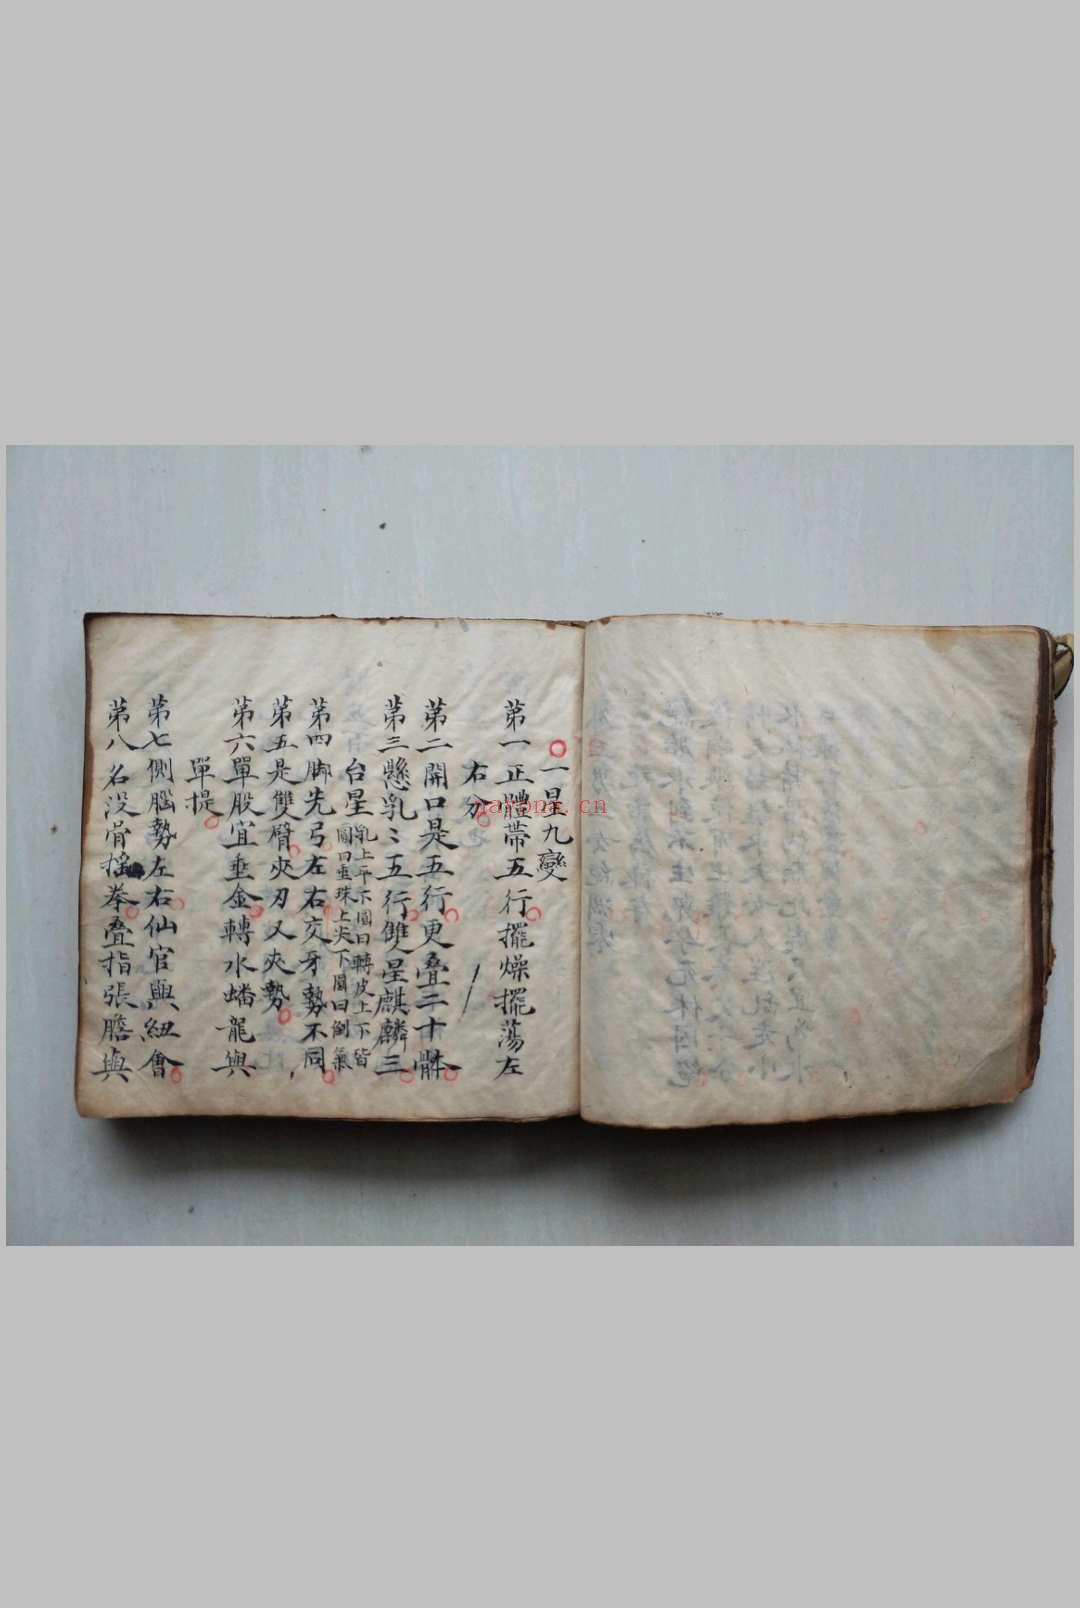 一星九變
第一正體帶五行擺燥擺蕩左
右分
第二開口是五行更叠二十骵
第三懸乳〻五行雙星麒麟三
台星乳上平下圓曰轉皮上下皆
圓曰垂珠上尖下圓曰倒氣
第四脚先弓左右交牙勢不同
第五是雙臂夾刃又夾勢
第六單股宜垂金轉水蟠龍與
單提
第七側腦勢左右仙官與紐會
第八名没骨搖拳叠指張膽與
nayona.cn